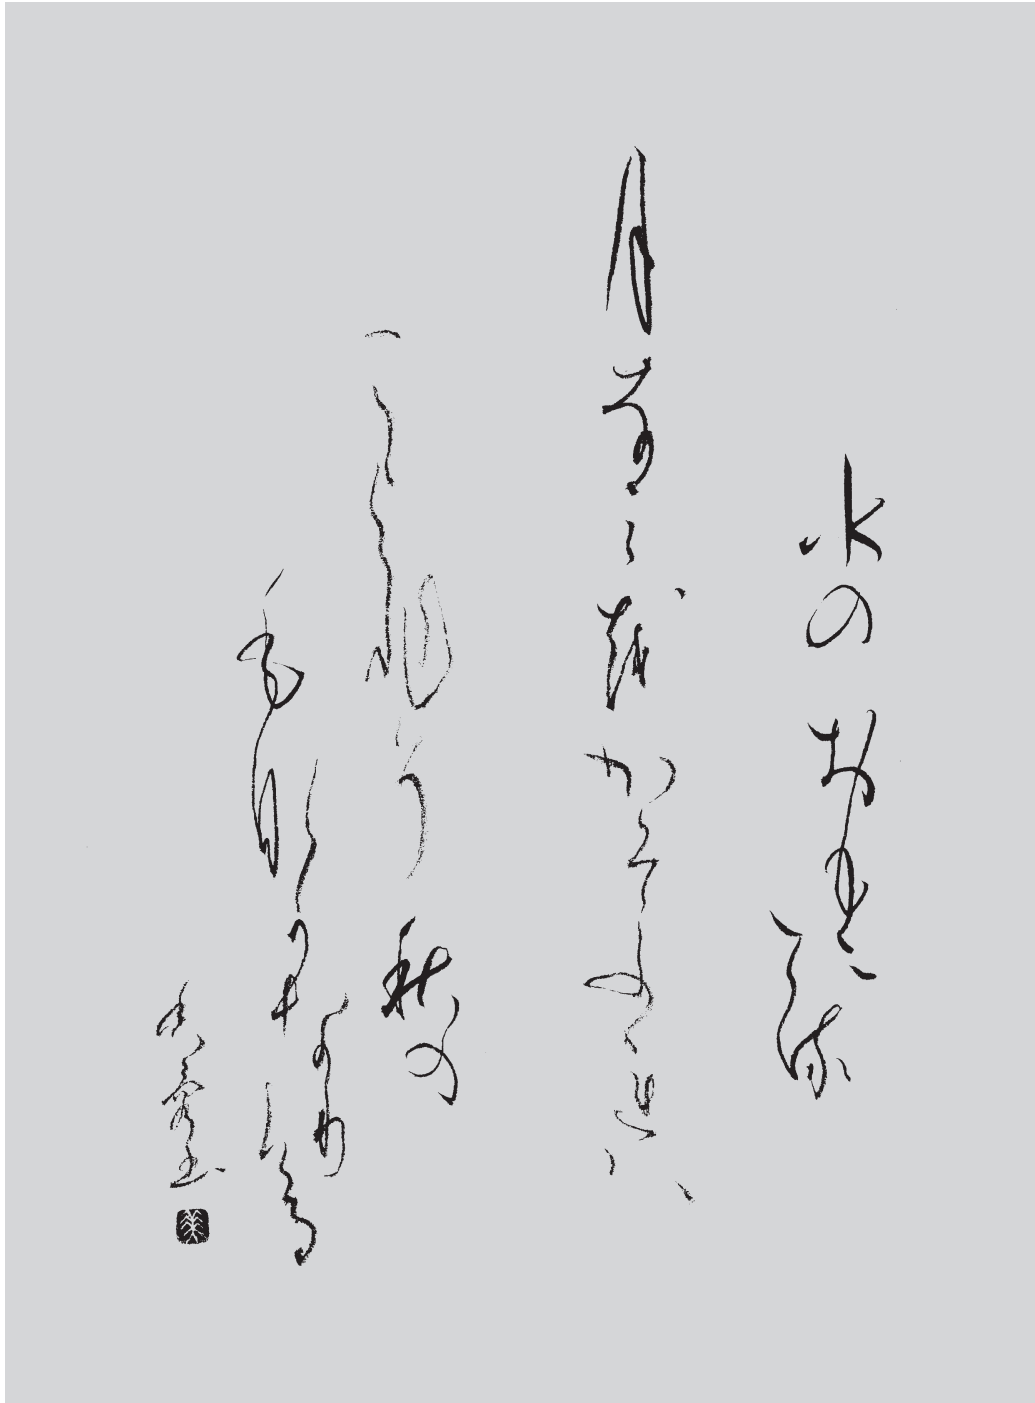 水のおもにてる
月なみをかそふれは
こよひそ秋の
もなかなりける